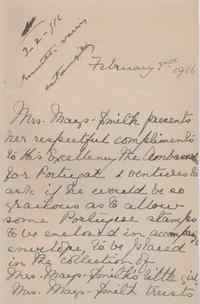 2-2-516
February 2nd 1916
Mrs. Mays-Smith presents
her respectful compliments
to His Excellency the Ambass
for Portugal & ventures to
ask if he would be so
gracious as to allow
some Portugese stamps
to be enclosed in accompg
envelope, to be placed
in the collection of
Mrs. Mays-Smith's little girl
Mrs. Mays-Smith trusts